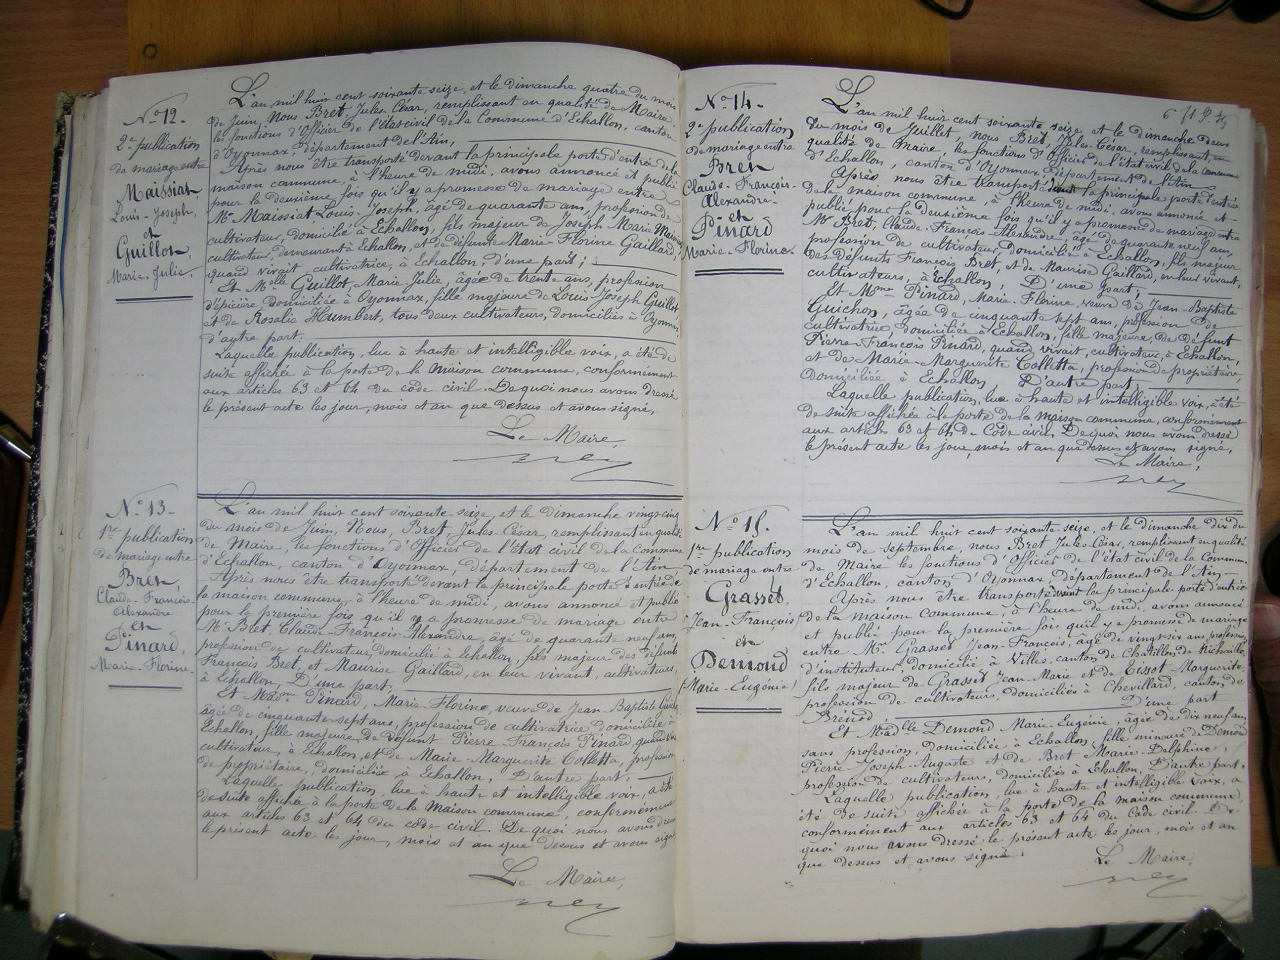 N.° 12.
2e publication
de mariage entre
Maissiat
Louis-Joseph,
et
Guillot,
Marie-Julie.
L'an mil huit cent soixante seize, et le dimanche quatre du mois
de Juin, Nous Bret, Jules-César, remplissant en qualité de Maire
les fonctions d'Officier de l'état civil de la Commune d'Echallon, canton
d'Oyonnax, département de l'Ain,
Après nous être transporté devant la principale porte d'entrée de la
maison commune, à l'heure de midi, avons annoncé et publié
pour la deuxième fois qu'il y a promesse de mariage entre
Mr. Maissiat Louis-Joseph, âgé de quarante ans, profession de
cultivateur, domicilié à Echallon, fils majeur de Joseph Marie Maissiat
cultivateur, demeurant à Echallon, et de défunte Marie-Florine Gaillard,
quand vivait, cultivatrice, à Echallon, d'une part;
Et Melle Guillot, Marie Julie, âgée de trente ans, profession
d'épicière domiciliée à Oyonnax, fille majeure de Louis-Joseph Guillot
et de Rosalie Humbert, tous deux cultivateurs, domiciliés à Oyonnax,
d'autre part.
Laquelle publication, lue à haute et intelligible voix, a été de
suite affichée à la porte de la Maison commune, conformément
aux articles 63 et 64 du code civil. De quoi nous avons dressé
le présent acte les jour, mois et an que dessus et avons signé,
Le Maire,
N.° 13.
1re publication
de mariage entre
Bret,
Claude-François-
Alexandre
et
Pinard,
Marie-Florine.
L'an mil huit cent soixante seize, et le dimanche vingt-cinq
du mois de Juin, Nous, Bret Jules-César, remplissant en qualité
de Maire, les fonctions d'Officier de l'Etat civil de la Commune
d'Echallon, canton d'Oyonnax, département de l'Ain
Après nous être transporté devant la principale porte d'entrée de
la maison commune, à l'heure de midi, avons annoncé et publié
pour la première fois qu'il y a promesse de mariage entre
Mr. Bret, Claude-François-Alexandre, âgé de quarante neuf ans,
profession de cultivateur domicilié à Echallon, fils majeur des défunts
François Bret, et Maurise Gaillard, en leur vivant, cultivateurs,
à Echallon D'une part,
Et Madme Pinard, Marie Florine, veuve de Jean Baptiste Guichon
âgée de cinquante sept ans, profession de cultivatrice domiciliée à
Echallon, fille majeure de défunt Pierre François Pinard quand vivait
cultivateur, à Echallon, et de Marie Marguerite Colletta, profession
de propriétaire, domiciliée à Echallon, D'autre part;
Laquelle publication, lue à haute et intelligible voix, a été
de suite affichée à la porte de la Maison commune, conformément
aux articles 63 et 64 du code civil. De quoi nous avons dressé
le présent acte les jour, mois et an que dessus et avons signé
Le Maire,
N.° 14.
2e publication
de mariage entre
Bret
Claude-François-
Alexandre-
et
Pinard
Marie-Florine.
L'an mil huit cent soixante seize et le dimanche deux
du mois de Juillet, nous Bret, Jules-César, remplissant, en
qualité de Maire, les fonctions d'Officier de l'état civil de la Commune
d'Echallon, canton d'Oyonnax département de l'Ain
Après nous être transporté devant la principale porte d'entrée
de la maison commune, à l'heure de midi, avons annoncé et
publié pour la deuxième fois qu'il y a promesse de mariage entre
Mr Bret, Claude-François Alexandre, âgé de quarante neuf ans,
profession de cultivateur, Domicilié à Echallon, fils majeur
des défunts François Bret, et de Maurise Gaillard, en leur vivant,
cultivateurs, à Echallon, D'une part;
Et Mme Pinard, Marie Florine, veuve de Jean-Baptiste
Guichon, âgée de cinquante sept ans, profession de
cultivatrice, domiciliée à Echallon, fille majeure, de défunt
Pierre-François Pinard, quand vivait, cultivateur, à Echallon,
et de Marie-Marguerite Colletta, profession de propriétaire,
domiciliée à Echallon, D'autre part,
Laquelle publication, lue à haute et intelligible voix, a été
de suite affichée à la porte de la maison commune, conformément
aux articles 63 et 64 de Code civil. De quoi nous avons dressé
le présent acte les jour, mois et an que dessus et avons signé,
Le Maire,
N.° 15.
1re publication
de mariage entre
Grasset
Jean-François
et
Demond
Marie-Eugénie
L'an mil huit cent soixante seize, et le dimanche dix du
mois de septembre, nous Bret Jules-César, remplissant en qualité
de Maire les fonctions d'Officier de l'état civil de la Commune
d'Echallon, canton d'Oyonnax, département de l'Ain.
Après nous être transporté devant la principale porte d'entrée
de la maison commune, à l'heure de midi, avons annoncé
et publié pour la première fois qu'il y a promesse de mariage
entre Mr. Grasset Jean-François, âgé de vingt-six ans, profession
d'instituteur, domicilié à Villes, canton de Châtillon de Michaille,
fils majeur de Grasset Jean-Marie et de Tissot Marguerite,
profession de cultivateurs, domiciliés à Chevillard, canton, de
Brénod, D'une part
Et Madelle Demond Marie-Eugénie, âgée de dix neuf ans,
sans profession, domiciliée à Echallon, fille mineure de Demond
Pierre Joseph-Auguste et de Bret Marie-Delphine,
profession de cultivateurs, domiciliés à Echallon, D'autre part.
Laquelle publication, lue à haute et intelligible voix, a
été de suite affichée à la porte de la maison commune,
conformément aux articles 63 et 64 du Code civil. De
quoi nous avons dressé le présent acte les jour, mois et an
que dessus et avons signé.
Le Maire,